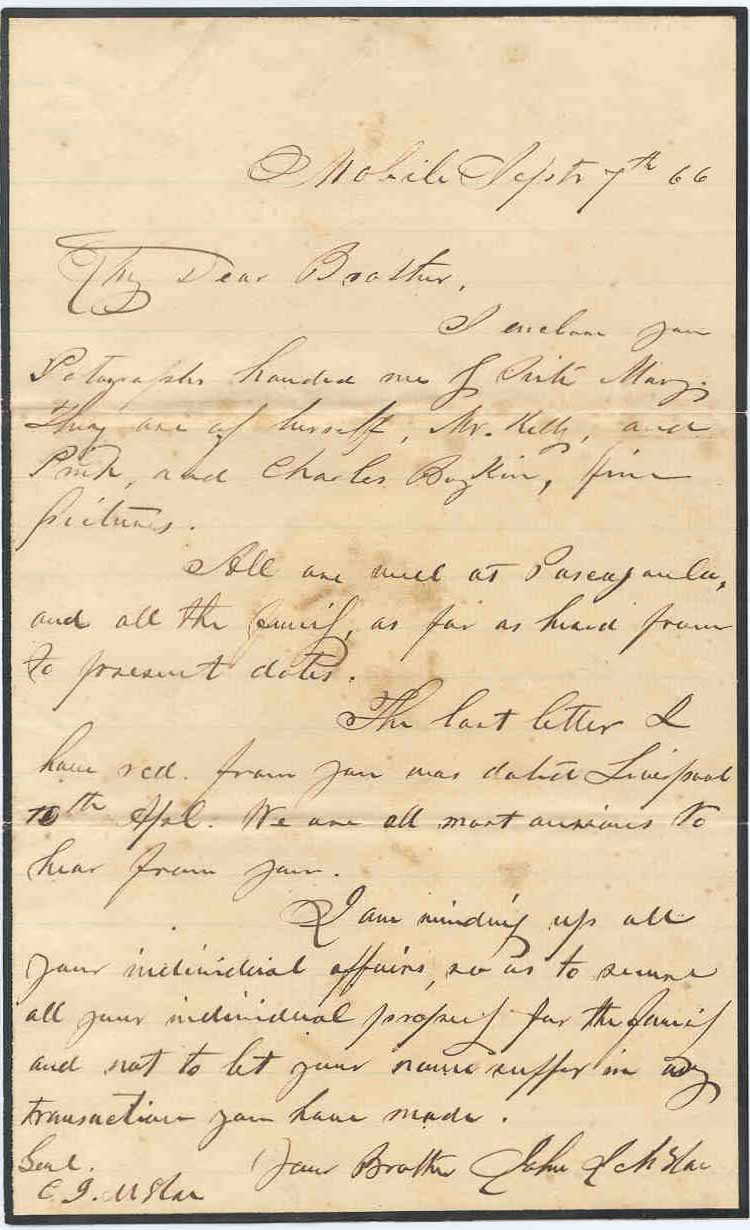 Mobile Septr 7th 66
My Dear Brother,
I enclose you
Potographs handed me by Sister Mary.
They are of herself, Mr. Kelly, and
Pink, and Charles Boykin, fine
pictures.
All are well at Pascagoula,
and all the family, as far as heard from
to present dates.
The last letter I
have recd. from you was dated Liverpool
10th Apl. We are all most anxious to
hear from you.
I am winding up all
your individual affairs, so as to secure
all your individual property for the family
and not to let your name suffer in any
transaction you have made.
Your Brother John
Genl.
C. J.